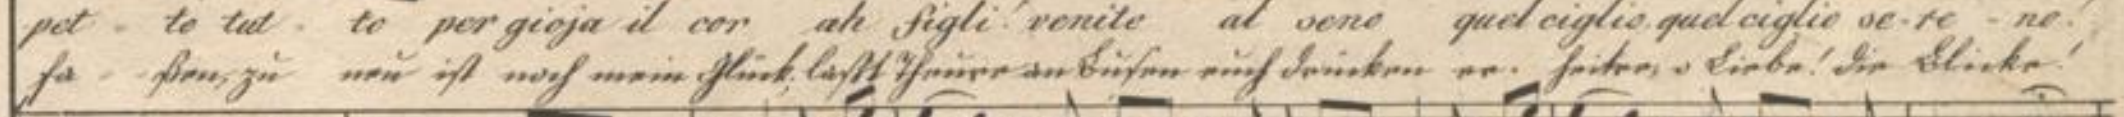 pet - to tut - to per gioja il cor ah figli! venite al seno quel ciglio quel ciglio se-re - no!
fa - ßen, zu neu ist noch mein Glück, lasst Theure an Busen euch drücken er - heitre, o Liebe! die Blicke!